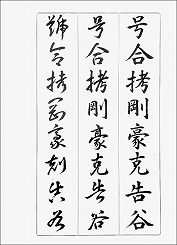 号合拷剛豪克告谷
号合拷剛豪克告谷
號合拷豪告谷